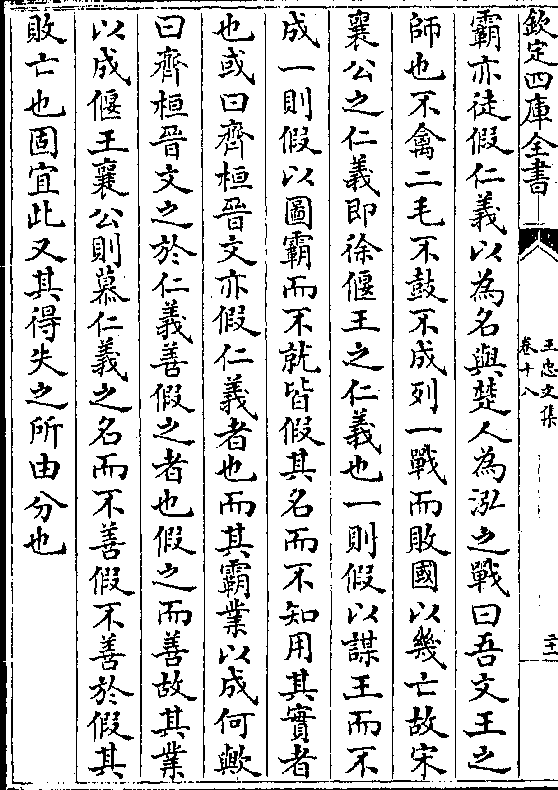 欽定四庫全書
王忠文集
卷十八
二十一
霸亦徒假仁義以為名與楚人為泓之戰曰吾文王之
師也不禽二毛不鼓不成列一戰而敗國以幾亡故宋
襄公之仁義即徐偃王之仁義也一則假以謀王而不
成一則假以圖霸而不就皆假其名而不知用其實者
也或曰齊桓晉文亦假仁義者也而其霸業以成何歟
曰齊桓晉文之於仁義善假之者也假之而善故其業
以成偃王襄公則慕仁義之名而不善假不善於假其
敗亡也固宜此又其得失之所由分也